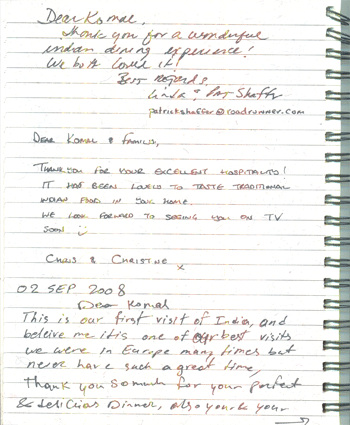 Dear Komal,
Thank you for a wonderful
indian dining experience!
We both loved it!
Best Regards,
Linda & Pat Shaffer
patrickshaffer@roadrunner.com
Dear Komal & Family,
Thank you for your excellent hospitality!
It has been lovely to taste traditional
Indian food in your home.
We look forward to seeing you on TV
soon
Chris & Christine x
02 SEP 2008
Dear Komal
This is our first visit of India, and
beleive me it is one of our best visits
we were in Europe many times but
never have such a great time,
Thank you so much for your perfect
& delicias Dinner, also your & your